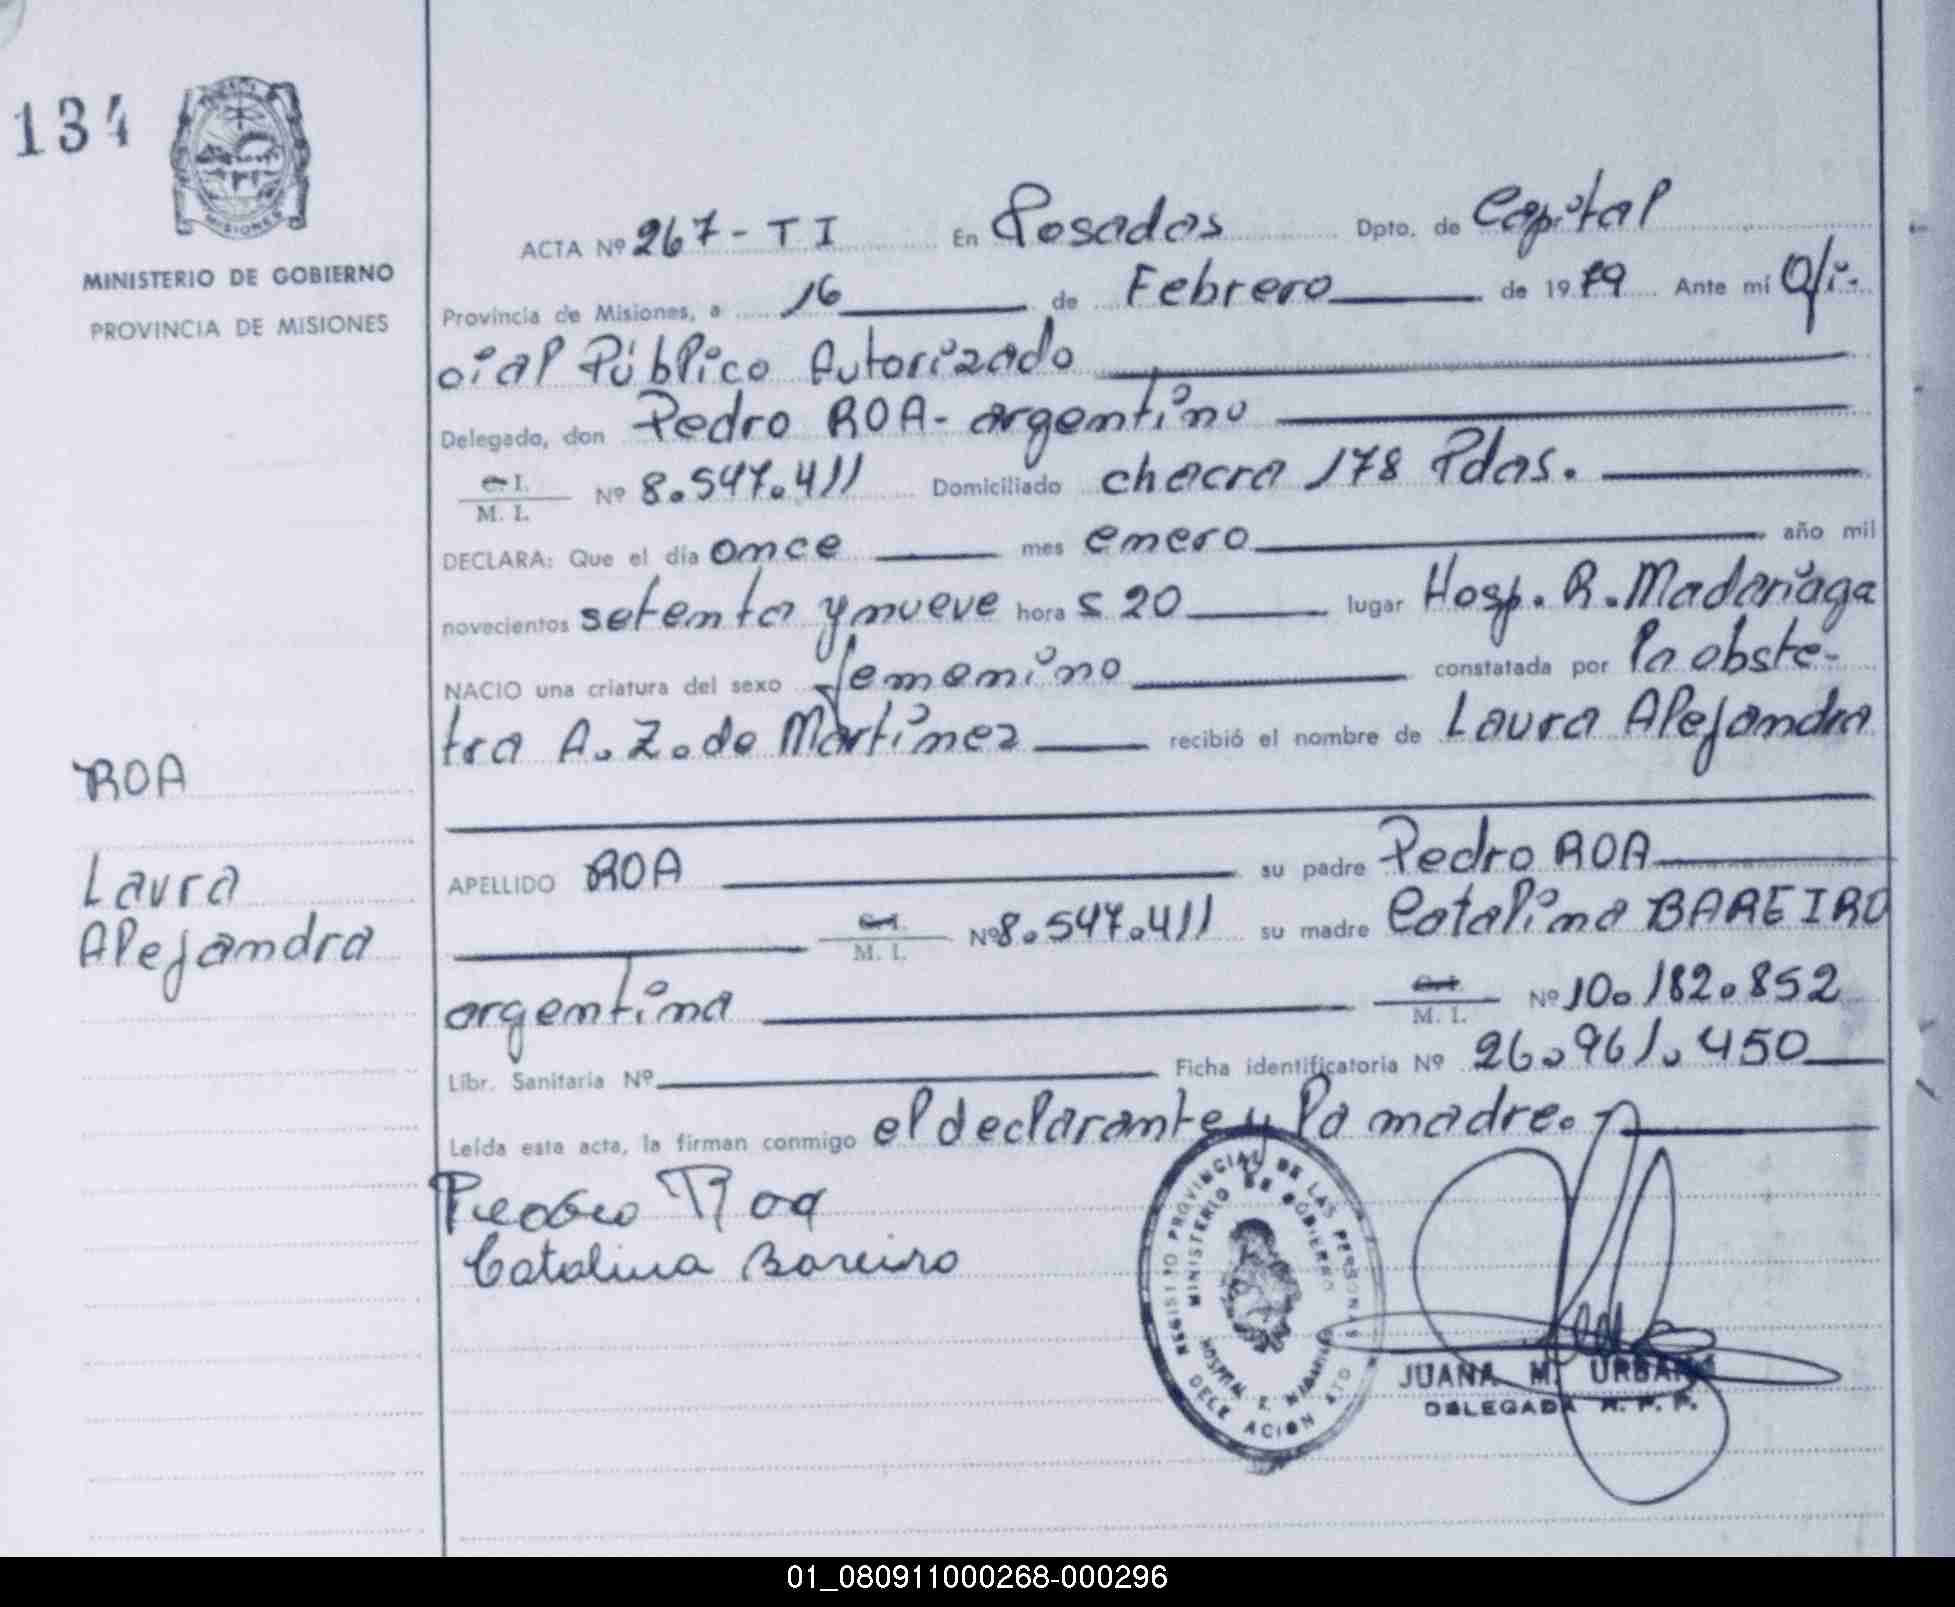 134
MISIONES
MINISTERIO DE GOBIERNO
PROVINCIA DE MISIONES
ACTA Nº 267-TI En Posadas Dpto. de Capital
Provincia de Misiones, a 16 de Febrero de 1979 Ante mí Ofi-
cial Público Autorizado
Delegado, don Pedro ROA - argentino
C. I. M. I. Nº 8.547.411 Domiciliado chacra 178 Pdas.
DECLARA: Que el día once mes enero año mil
novecientos setenta y nueve hora s 20 lugar Hosp. R. Madariaga
NACIO una criatura del sexo femenino constatada por la obste-
tra A. Z. de Martinez recibió el nombre de Laura Alejandra
ROA
Laura
Alejandra
APELLIDO ROA su padre Pedro ROA
C. I. M. I. Nº 8.547.411 su madre Catalina BAREIRO
argentina C. I. M. I. Nº 10.182.852
Libr. Sanitaria Nº Ficha identificatoria Nº 26.961.450
Leída esta acta, la firman conmigo el declarante y la madre.
Pedro Roa
Catalina Bareiro
REGISTRO PROVINCIAL DE LAS PERSONAS
MINISTERIO DE GOBIERNO
HOSPITAL R. MADARIAGA
JUANA M. URBANO
DELEGADA R. P. P.
01_080911000268-000296